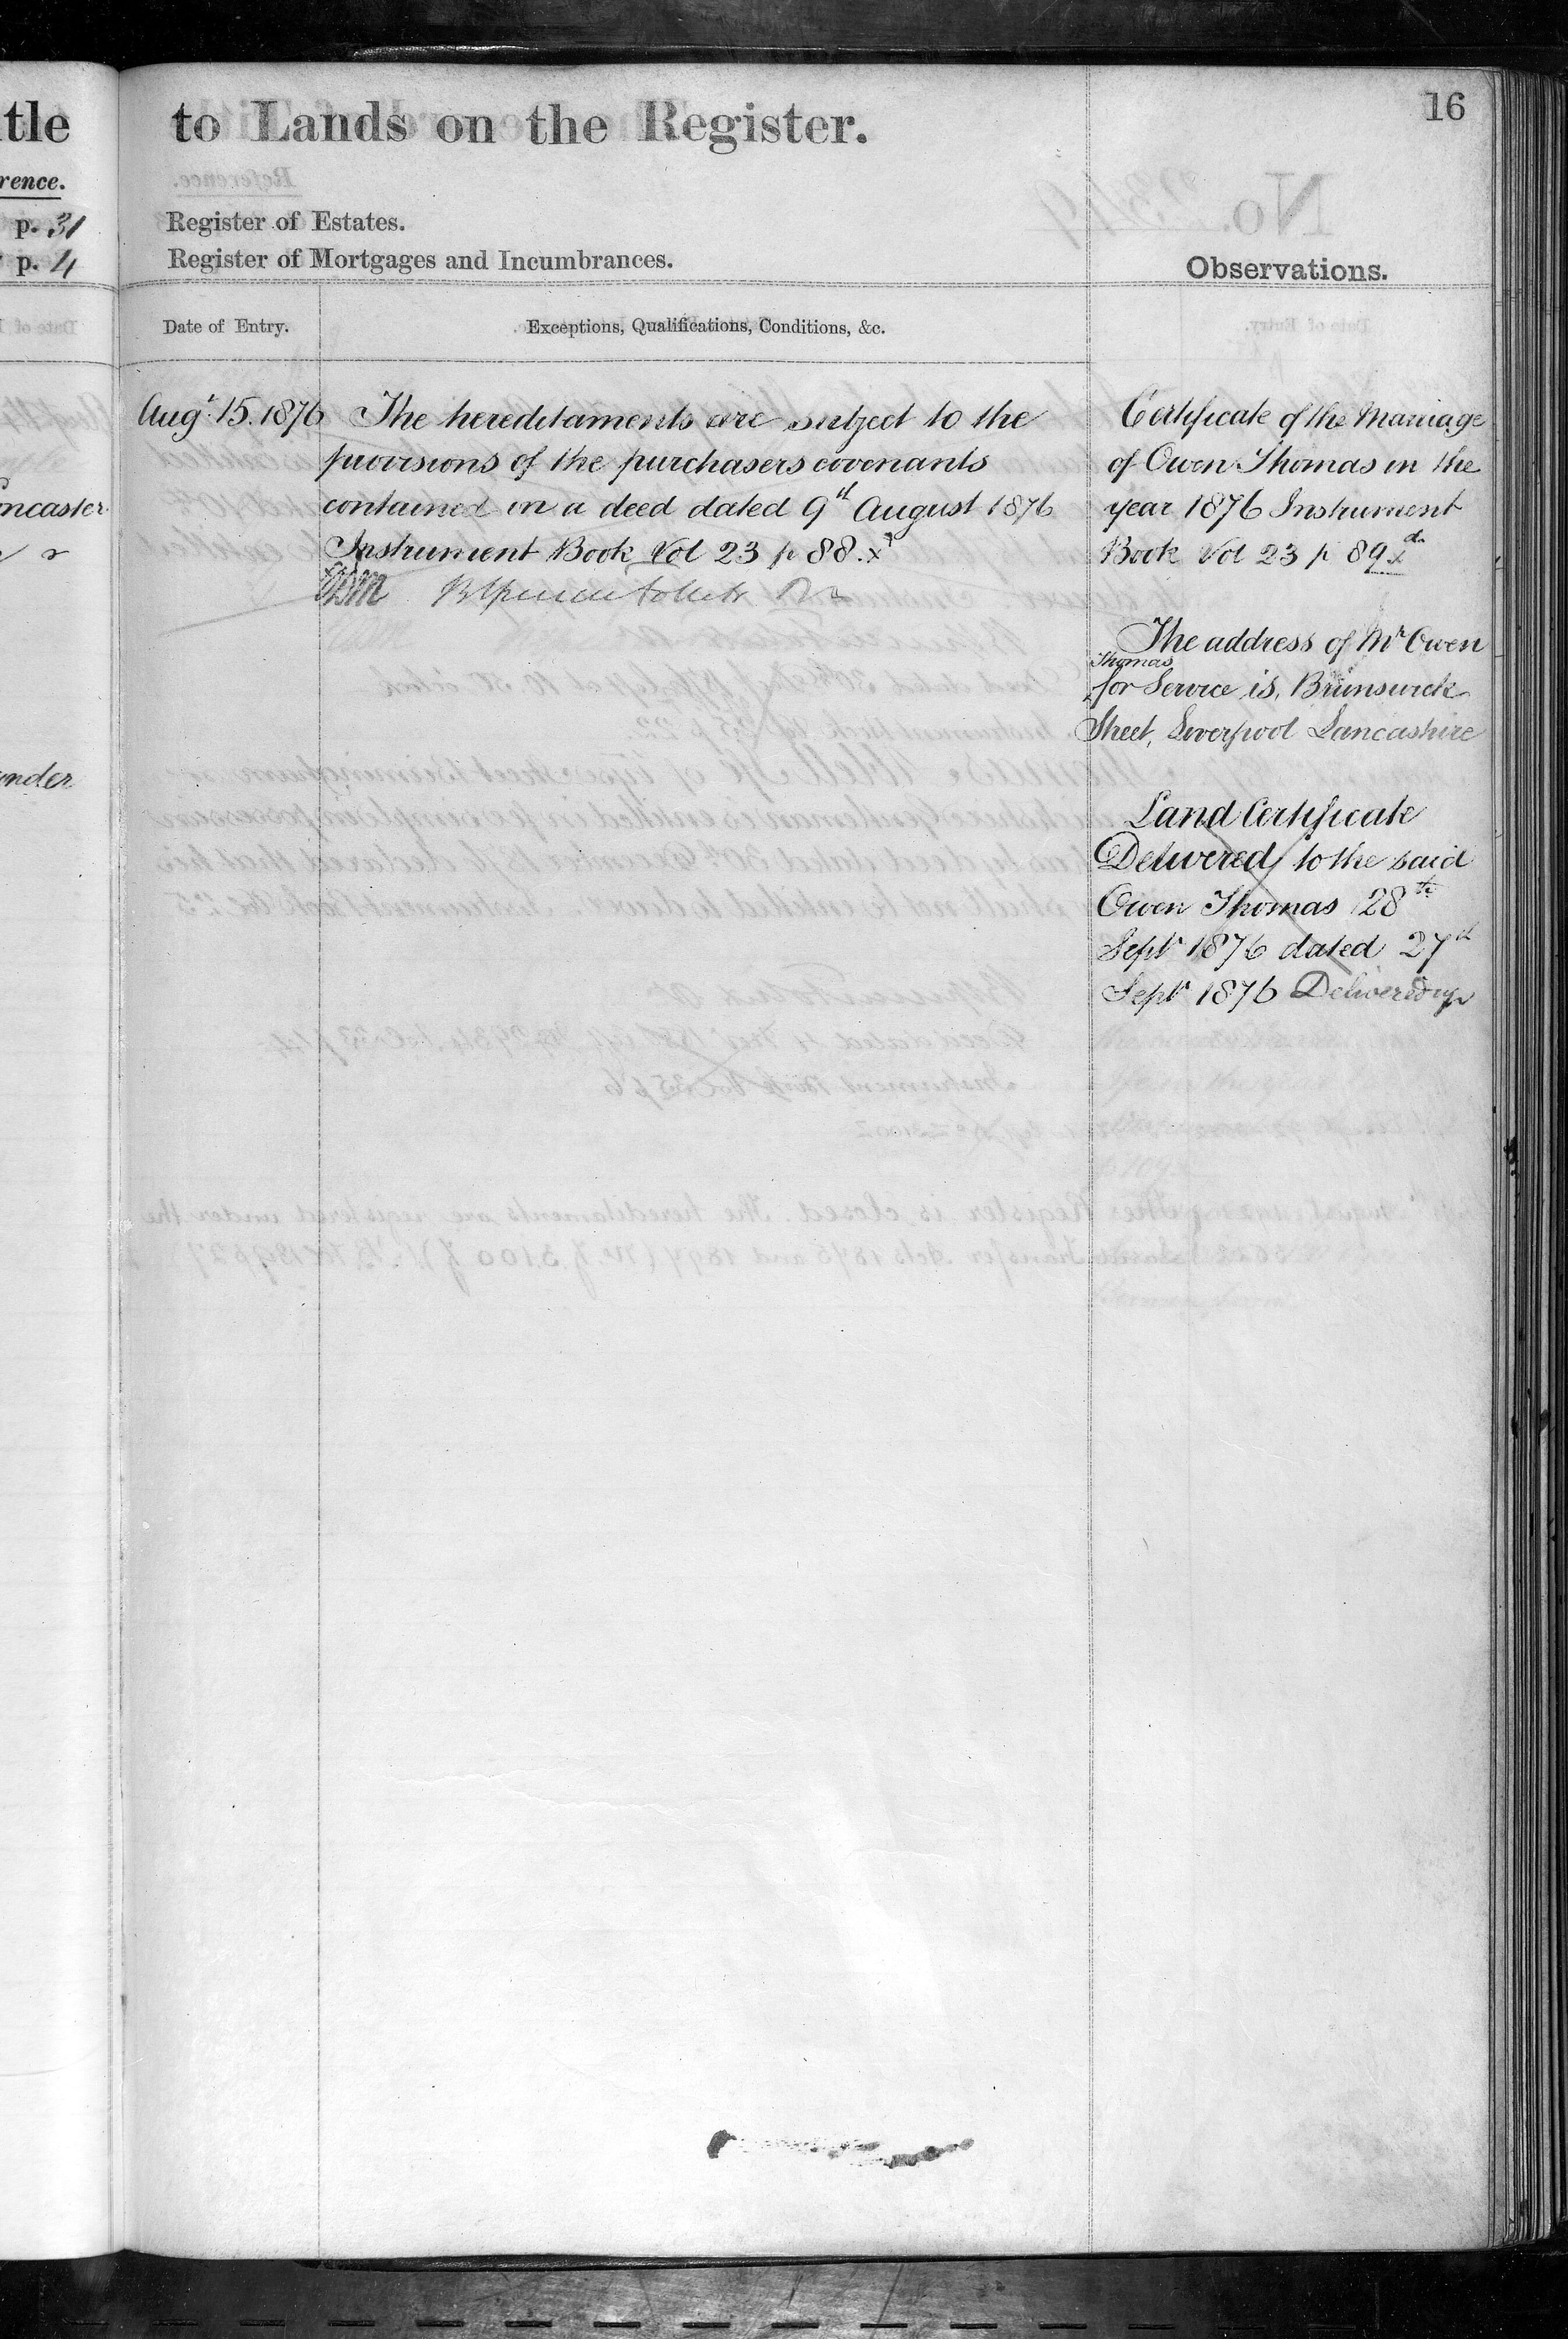 tle
rence.
p. 31
p. 4
ncaster
r
under
to Lands on the Register.
16
Register of Estates.
Register of Mortgages and Incumbrances.
Observations.
Date of Entry.
Exceptions, Qualifications, Conditions, &c.
Augt. 15. 1876
The hereditaments are subject to the
provisions of the purchasers covenants
contained in a deed dated 9th August 1876
Instrument Book Vol 23 p 88. x
Certificate of the Marriage
of Owen Thomas in the
year 1876 Instrument
Book Vol 23 p 89 x
The address of Mr Owen
Thomas
for Service is, Brunswick
Street, Liverpool Lancashire
Land Certificate
Delivered to the said
Owen Thomas 28th
Septr 1876 dated 27th
Septr 1876 Delivered up